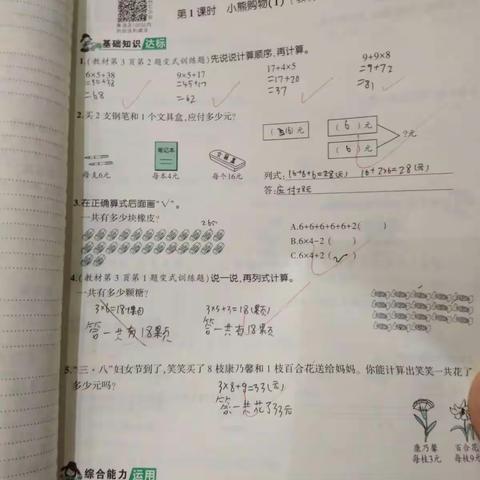 第1课时 小熊购物(1)
基础知识 达标
1.(教材第3页第2题变式训练题)先说说计算顺序,再计算。
6×5+38 9×5+17 17+4×5 9+9×8
=30+38 =45+17 =17+20 =9+72
=68 =62 =37 =81
2.买2支钢笔和1个文具盒,应付多少元?
(16)元 (6)元
(6)元
?元
笔记本
文具盒
每支6元 每本4元 每个16元
列式:16+6+6=28(元) 16+2×6=28(元)
答:应付28元
3.在正确算式后面画“√”。
一共有多少块橡皮?
A.6+6+6+6+6+2( )
B.6×4-2 ( )
C.6×4+2 (√)
4.(教材第3页第1题变式训练题)说一说,再列式计算。
一共有多少颗糖?
3×6=18(颗) 3×5+3=18(颗)
答一共有18颗 答一共有18颗
5.“三·八”妇女节到了,笑笑买了8枝康乃馨和1枝百合花送给妈妈。你能计算出笑笑一共花了
多少元吗?
3×8+9=33(元)
答一共花了33元
康乃馨 百合花
每枝3元 每枝9元
综合能力 运用